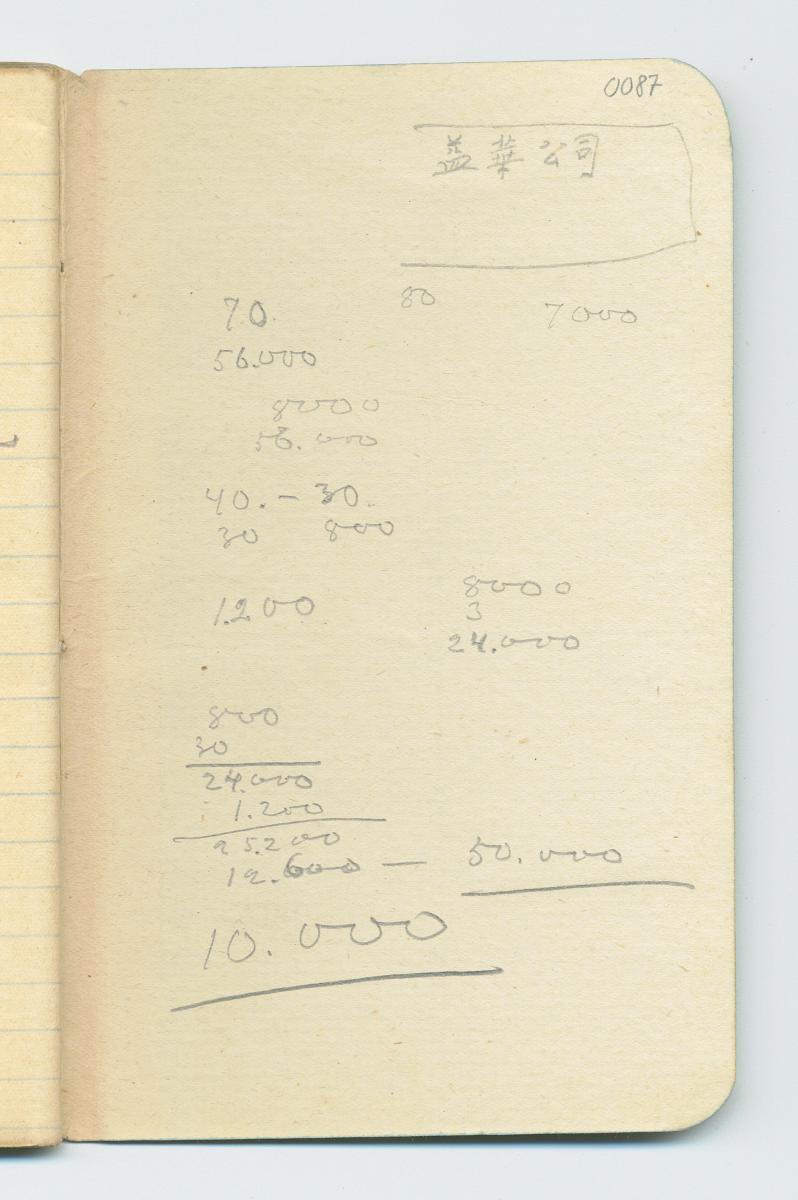 0087
益華公司
70. 80 7000
56.000
8000
56.000
40. – 30.
30 800
8000
1.200 3
24.000
800
30
24.000
1.200
25.200
12.600 — 50.000
10.000